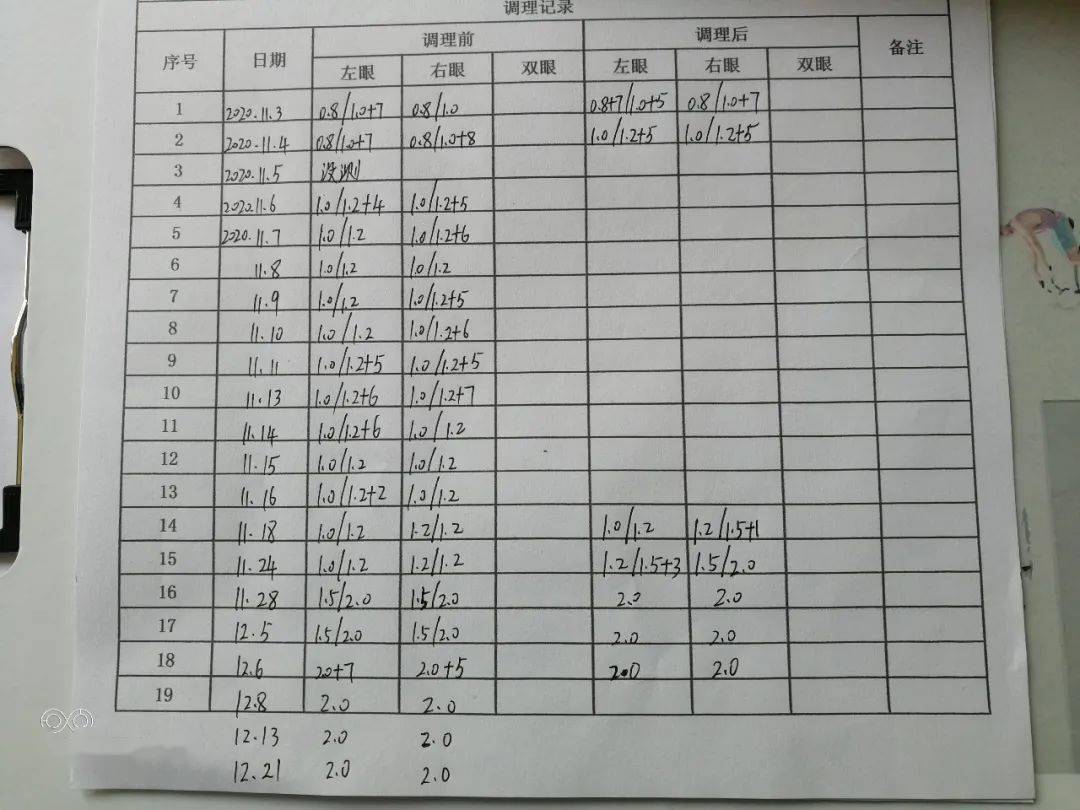 调理记录
序号 日期 调理前 调理后 备注
左眼 右眼 双眼 左眼 右眼 双眼
1 2020.11.3 0.8/1.0+7 0.8/1.0 0.8+7/1.0+5 0.8/1.0+7
2 2020.11.4 0.8/1.0+7 0.8/1.0+8 1.0/1.2+5 1.0/1.2+5
3 2020.11.5 没测
4 2020.11.6 1.0/1.2+4 1.0/1.2+5
5 2020.11.7 1.0/1.2 1.0/1.2+6
6 11.8 1.0/1.2 1.0/1.2
7 11.9 1.0/1.2 1.0/1.2+5
8 11.10 1.0/1.2 1.0/1.2+6
9 11.11 1.0/1.2+5 1.0/1.2+5
10 11.13 1.0/1.2+6 1.0/1.2+7
11 11.14 1.0/1.2+6 1.0/1.2
12 11.15 1.0/1.2 1.0/1.2
13 11.16 1.0/1.2+2 1.0/1.2
14 11.18 1.0/1.2 1.2/1.2 1.0/1.2 1.2/1.5+1
15 11.24 1.0/1.2 1.2/1.2 1.2/1.5+3 1.5/2.0
16 11.28 1.5/2.0 1.5/2.0 2.0 2.0
17 12.5 1.5/2.0 1.5/2.0 2.0 2.0
18 12.6 2.0+7 2.0+5 2.0 2.0
19 12.8 2.0 2.0
12.13 2.0 2.0
12.21 2.0 2.0